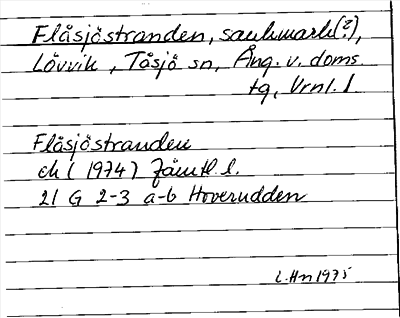 Flåsjöstranden, saukmark(?),
Lövvik, Tåsjö sn, Ång. v. doms.
tg, Vrnl. l
Flåsjöstranden
ek ( 1974) Jämtl. l.
21 G 2-3 a-b Hoverudden
L. Hn 1975